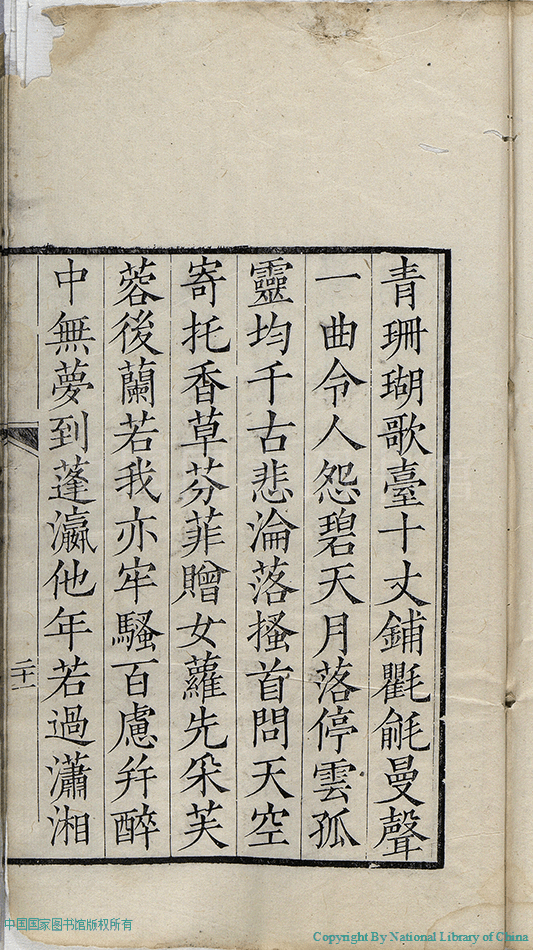 青珊瑚歌臺十丈鋪氍毹曼聲
一曲令人怨碧天月落停雲孤
靈均千古悲淪落搔首問天空
寄托香草芬菲贈女蘿先采芙
蓉後蘭若我亦牢騷百慮幷醉
中無夢到蓬瀛他年若過瀟湘
二十一
中国国家图书馆版权所有
Copyright By National Library of China